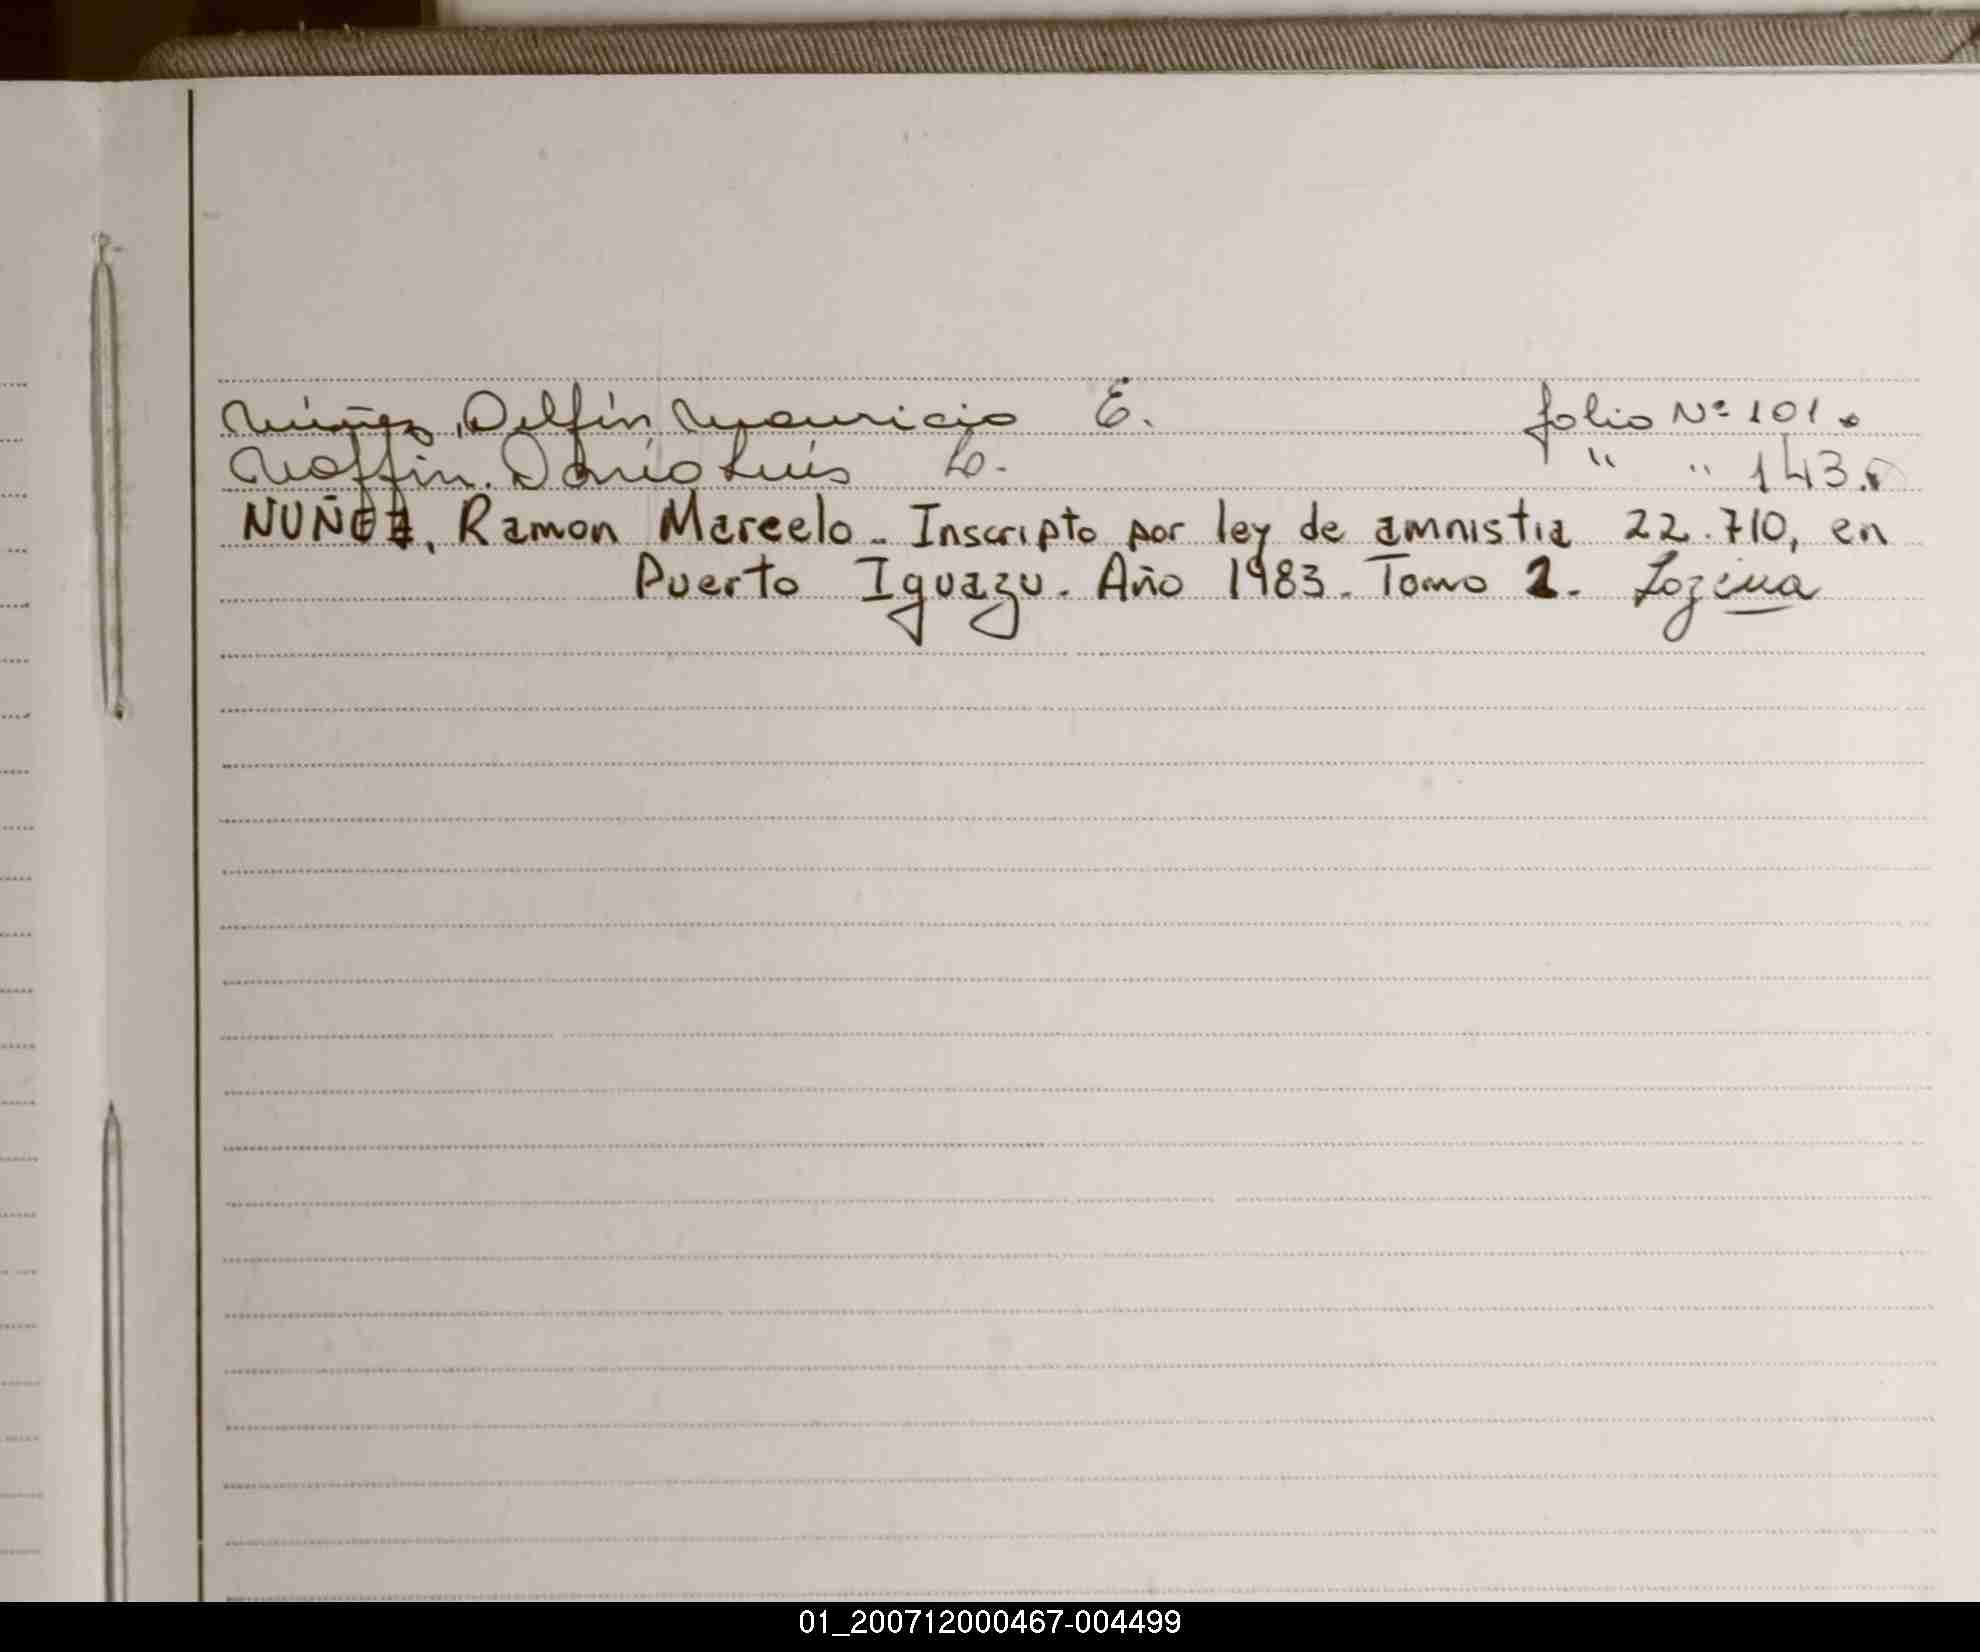 Núñez, Delfín Mauricio E. folio Nº 101.
Noffin. Darío Luis L. " " 143.
NUÑEZ, Ramon Marcelo. Inscripto por ley de amnistia 22.710, en
Puerto Iguazu. Año 1983. Tomo 2.
01_200712000467-004499